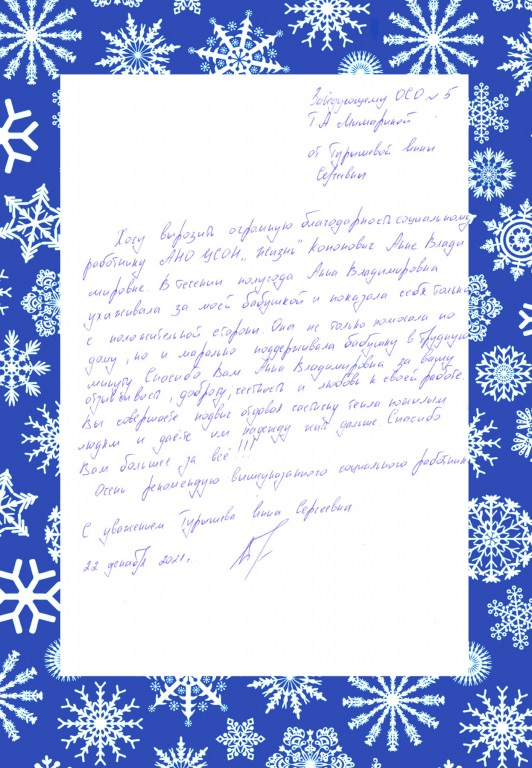 Заведующему ОСО № 5
Т А Лимариной
от Турышевой Инны
Сергеевны
Хочу выразить огромную благодарность социальному
работнику АНО ЦСОН „Жизнь" Кононович Анне Влади
мировне. В течении полугода Анна Владимировна
ухаживала за моей бабушкой и показала себя только
с положительной стороны. Она не только помогала по
дому, но и марально поддерживала бабушку в трудную
минуту Спасибо Вам Анна Владимировна за вашу
отзывчивость, доброту, честность и любовь к своей работе.
Вы совершаете подвиг отдавая частичку тепла пожилым
людям и даёте им надежду жить дальше. Спасибо
Вам большое за всё!!!
Очень рекомендую вышеуказанного социального работника
С уважением Турышева Инна Сергеевна
22 декабря 2021 г.